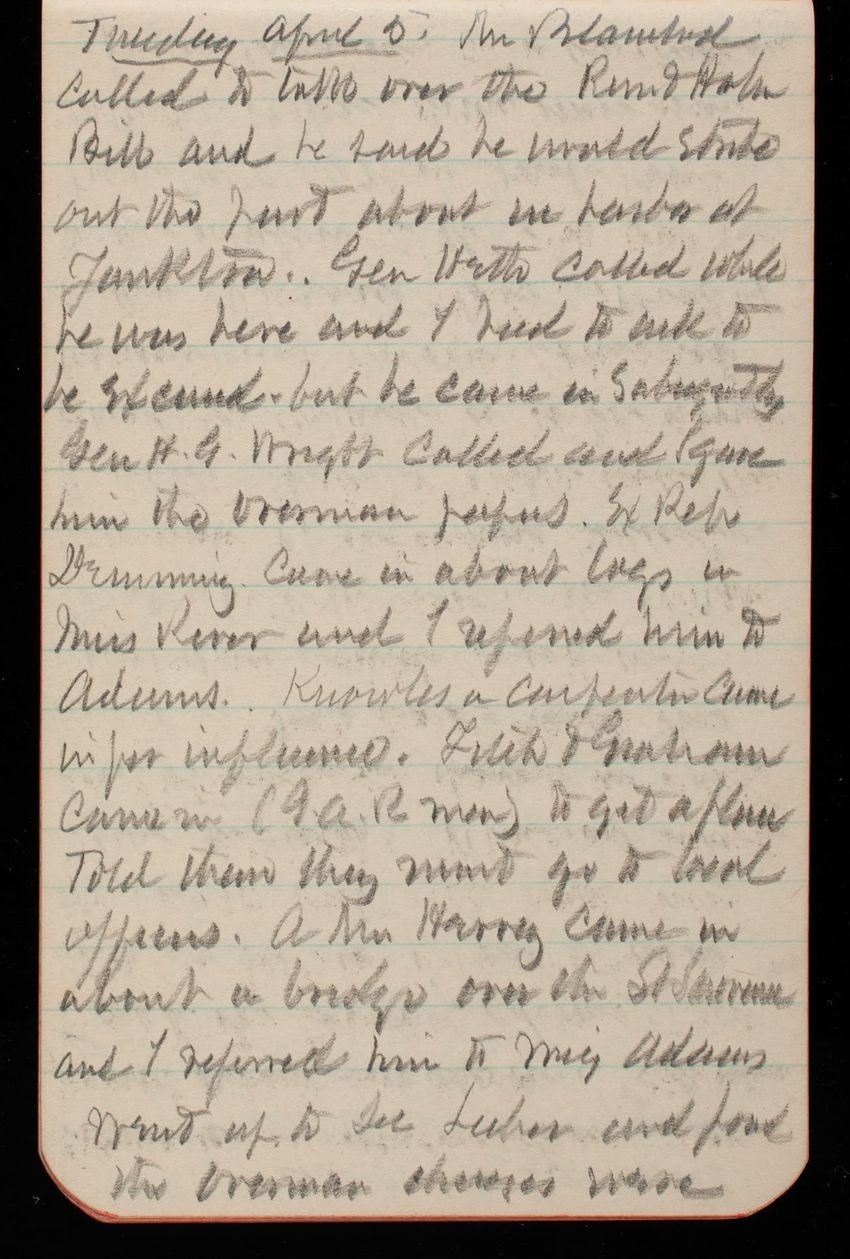 Tuesday April 5. Mr Blanchard
called to talk over the River & Harbor
Bill and he said he would strike
out the part about ice harbor at
Yankton.. Gen Heth called while
he was here and I had to ask to
be excused. but he came in subsequently
Gen H. G. Wright called and I gave
him the Overman papers. Ex Rep
Demming came in about logs in
Miss River and I referred him to
Adams.. Knowles a carpenter came
in for influence. Fitch & Graham
came in (G.A.R men) to get a place
Told them they must go to local
officers. A Mr Harvey came in
about a bridge over the St Lawrence
and I referred him to Maj Adams
Went up to see Lieber and found
the Overman charges were